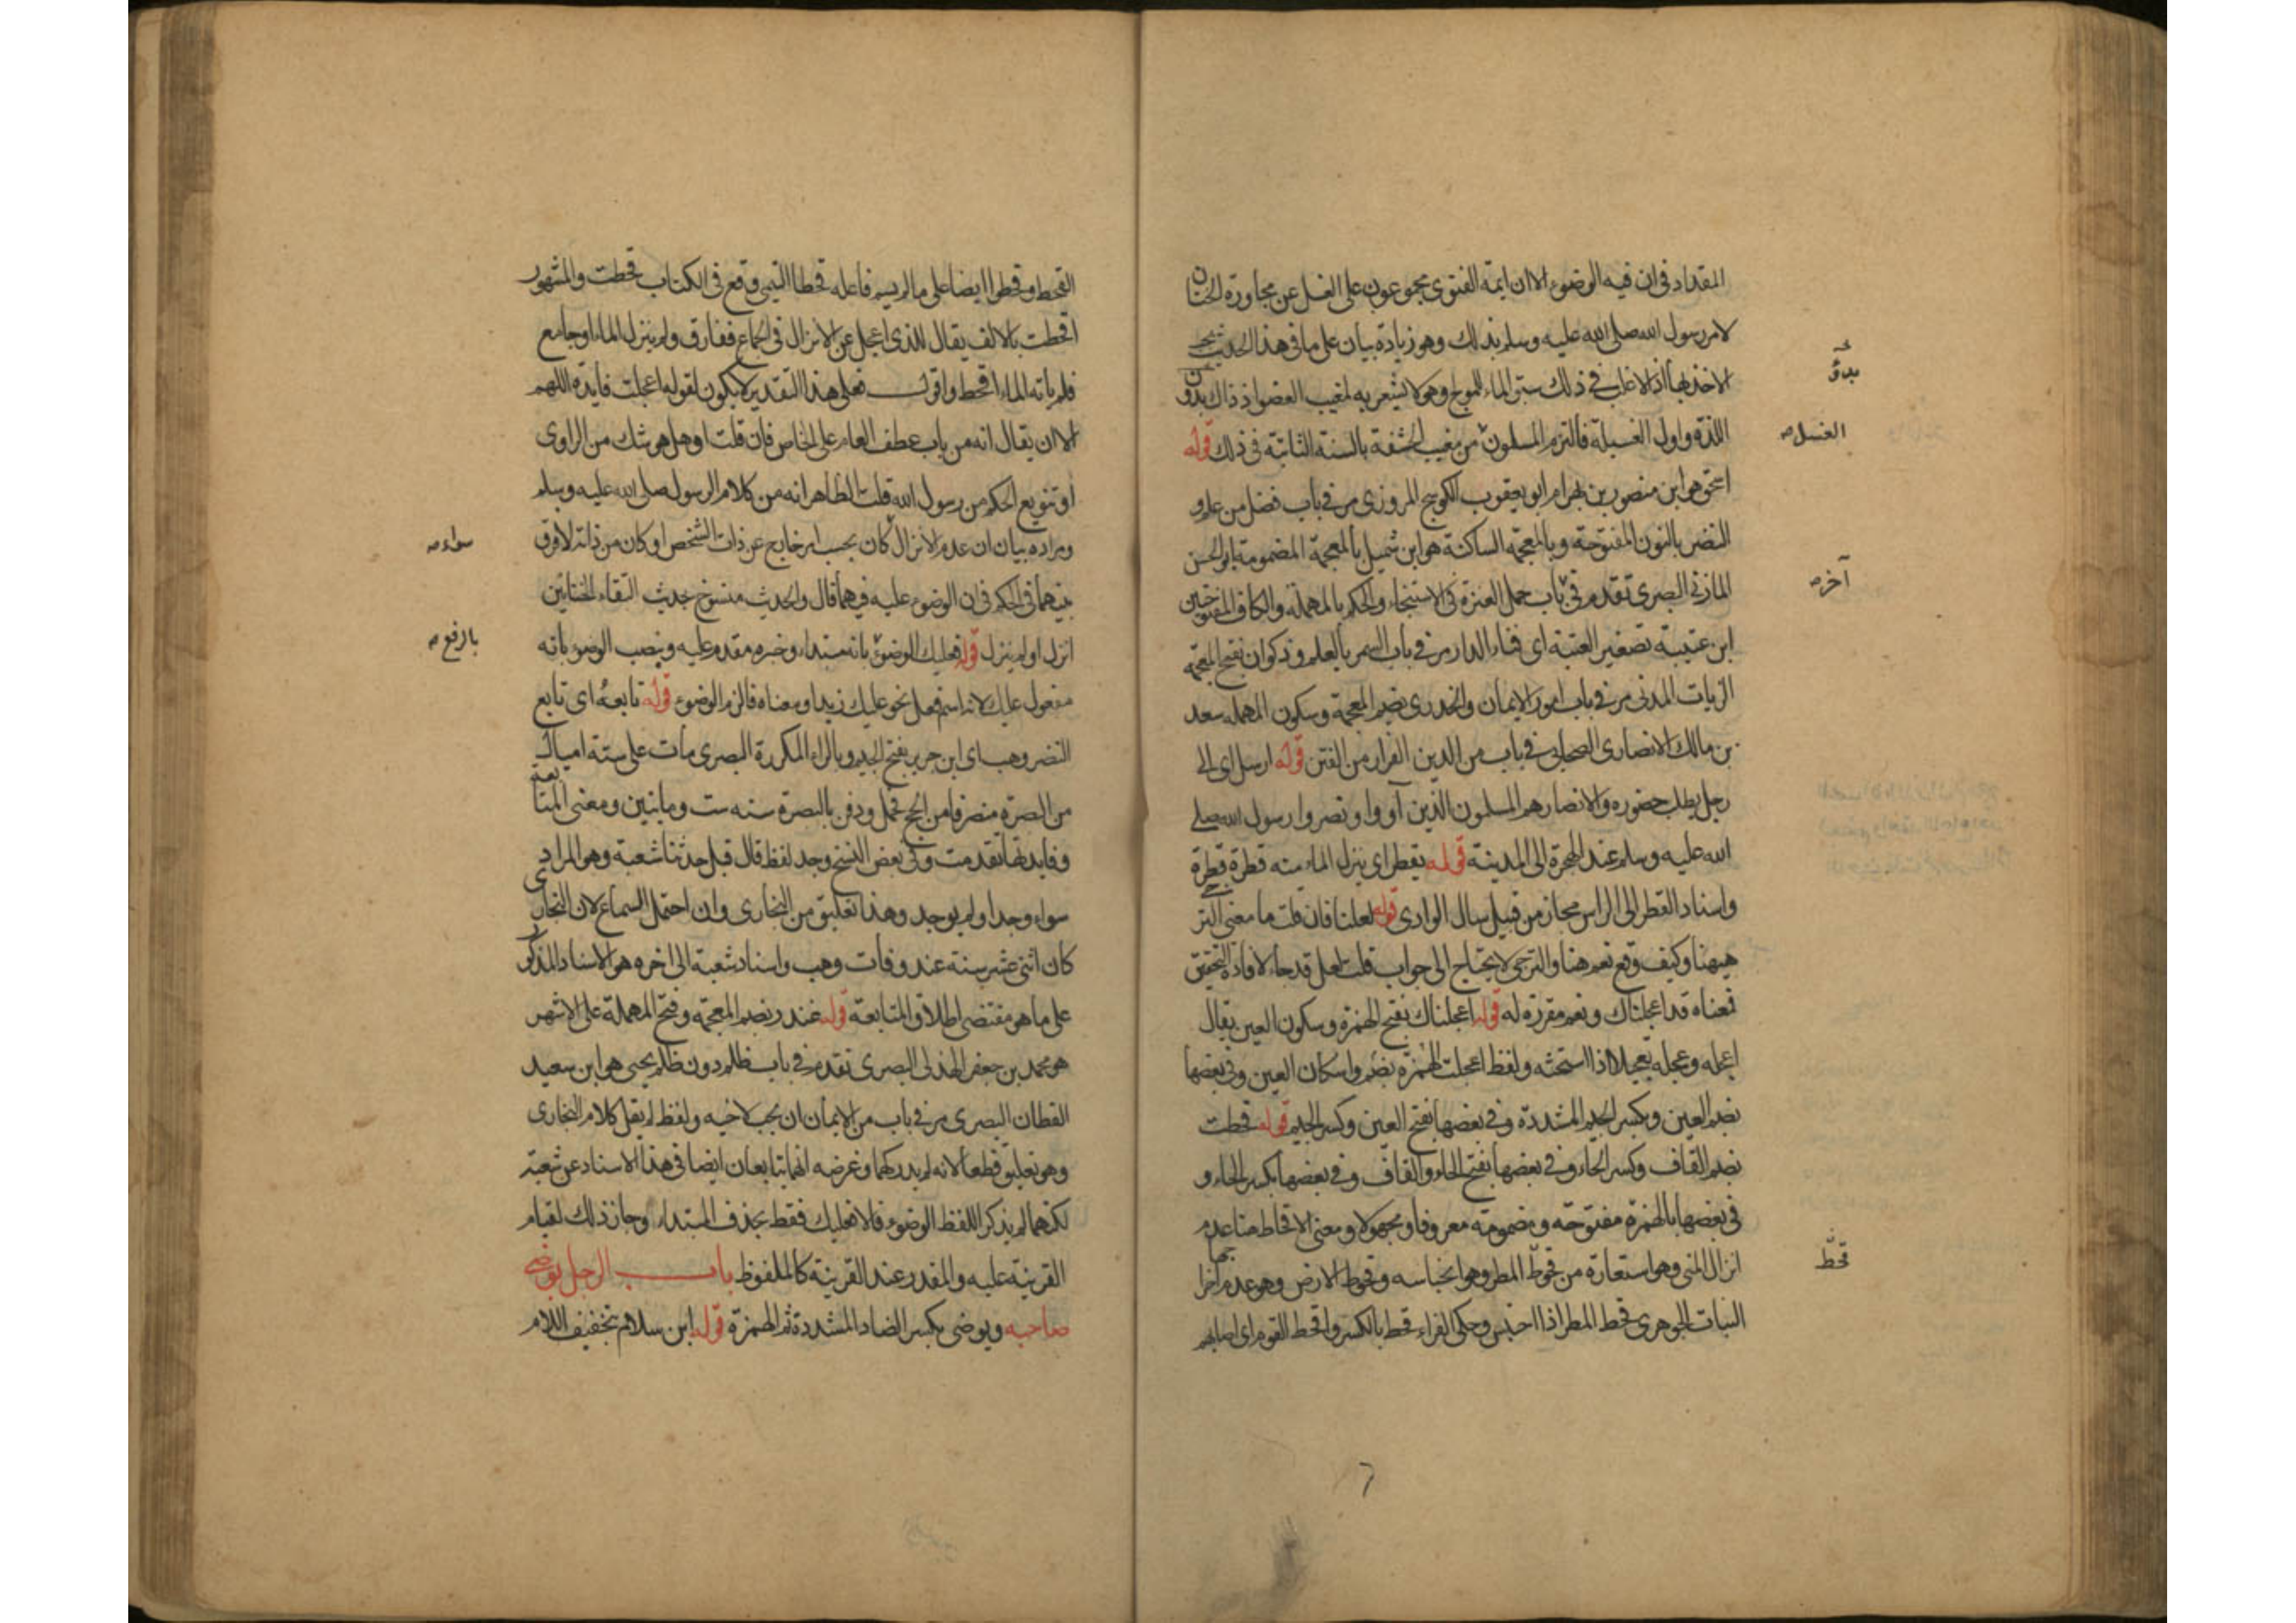 المقداد في ان فيه الوضوء الا ان ايمة الفتوى مجموعون على الغسل عن مجاورة الختان
لامر رسول الله صلى الله عليه وسلم بذلك وهو زيادة بيان على ما في هذا الحديث يجب
الاخذ بها اذ الاغلب في ذلك سبق الماء للمولج وهو لا يشعر به لمغيب العضو اذ ذاك بدؤ
بدؤ
اللذة واول العسيلة فالتزم المسلمون من مغيب الحشفة بالسنة الثابتة في ذلك قوله
الغسل صح
اسحق هو ابن منصور بن بهرام ابو يعقوب الكوسج المروزى مر في باب فضل من علم و
النضر بالنون المفتوحة وبالمعجمة الساكنة هو ابن شميل بالمعجمة المضمومة ابو الحسن
المازني البصرى تقدم في باب حمل العنزة في الاستنجاء والحكم بالمهملة والكاف المفتوحتين
آخر صح
ابن عتيبة تصغير العتبة اى فناء الدار مر في باب السمر بالعلم وذكوان بفتح المعجمة
الزيات المدنى مر في باب امور الايمان والخدرى بضم المعجمة وسكون المهملة سعد
بن مالك الانصارى الصحابى في باب من الدين الفرار من الفتن قوله ارسل اى الى
رجل يطلب حضوره والانصار هم المسلمون الذين آووا ونصروا رسول الله صلى
الله عليه وسلم عند الهجرة الى المدينة قوله يقطر اى ينزل الماء منه قطرة قطرة
واسناد القطر الى الراس مجاز من قبيل سال الوادى قوله لعلنا فان قلت ما معنى التر
ههنا وكيف وقع نعم هنا والترجى لا يحتاج الى جواب قلت لعل قد جاء لافادة التحقيق
فمعناه قد اعجلناك ونعم مقررة له قوله اعجلناك بفتح الهمزة وسكون العين يقال
اعجله وعجله تعجيلا اذا استحثه ولفظ اعجلت الهمزة بضم واسكان العين وفي بعضها
بضم العين وبكسر الجيم المشددة وفي بعضها بفتح العين وكسر الجيم قوله قحطت
بضم القاف وكسر الحاء وفي بعضها بفتح الحاء والقاف وفي بعضها بكسر الحاء و
في بعضها بالهمزة مفتوحة ومضمومة معروفا ومجهولا ومعنى الاقحاط هنا عدم
انزال المنى وهو استعارة من قحوط المطر وهو انحباسه وقحوط الارض وهو عدم اخراجها
قحط
النبات الجوهرى قحط المطر اذا احتبس وحكى الفراء قحط بالكسر واقحط القوم اى اصابهم
القحط وقحطوا ايضا على ما لم يسم فاعله قحطا التيمى وقع في الكتاب قحطت والمشهور
اقحطت بالالف يقال للذى اعجل عن الانزال في الجماع ففارق ولم ينزل الماء او جامع
فلم ياته الماء اقحط واقول فعلى هذا التقدير لا يكون لقوله اعجلت فايدة اللهم
الا ان يقال انه من باب عطف العام على الخاص فان قلت او هل هو شك من الراوى
او تنويع الحكم من رسول الله قلت الظاهر انه من كلام الرسول صلى الله عليه وسلم
ومراده بيان ان عدم الانزال كان بحسب امر خارج عن ذات الشخص او كان من ذاته لا فرق
سواء صح
بينهما في الحكم في ان الوضوء عليه فيهما قال والحديث منسوخ بحديث التقاء الختانين
انزل او لم ينزل قوله فعليك الوضوء بانه مبتداء وخبره مقدم عليه وينصب الوضوء بانه
بالرفع صح
مفعول عليك لانه اسم فعل نحو عليك زيدا ومعناه فالزم الوضوء قوله تابعه اى تابع
النضر وهب اى ابن جرير بفتح الجيم وبالراء المكررة البصرى مات على ستة اميال
من البصرة منصرفا من الحج فحمل ودفن بالبصرة سنه ست ومايتين ومعنى المتابعة
وفايدتها تقدمت وفي بعض النسخ وجد لفظ قال قبل حدثنا شعبة وهو المراد
سواء وجد او لم يوجد وهذا تعليق من البخارى وان احتمل السماع لان البخارى
كان اثنى عشر سنه عند وفات وهب واسناد شعبة الى اخره هو الاسناد المذكور
على ما هو مقتضى اطلاق المتابعة قوله غندر بضم المعجمة وفتح المهملة على الاشهر
هو محمد بن جعفر الهذلى البصرى تقدم في باب ظلم دون ظلم يحيى هو ابن سعيد
القطان البصرى مر في باب من الايمان ان يحب لاخيه ولفظ لم يقل كلام البخارى
وهو تعليق قطعا لانه لم يدركهما وغرضه انهما يتابعان ايضا في هذا الاسناد عن شعبة
لكنهما لم يذكرا لفظ الوضوء قالا فعليك فقط بحذف المبتداء وجاز ذلك لقيام
القرينة عليه والمقدر عند القرينة كالملفوظ باب الرجل يوضئ
صاحبه ويوضى بكسر الضاد المشددة ثم الهمزة قوله ابن سلام بتخفيف اللام